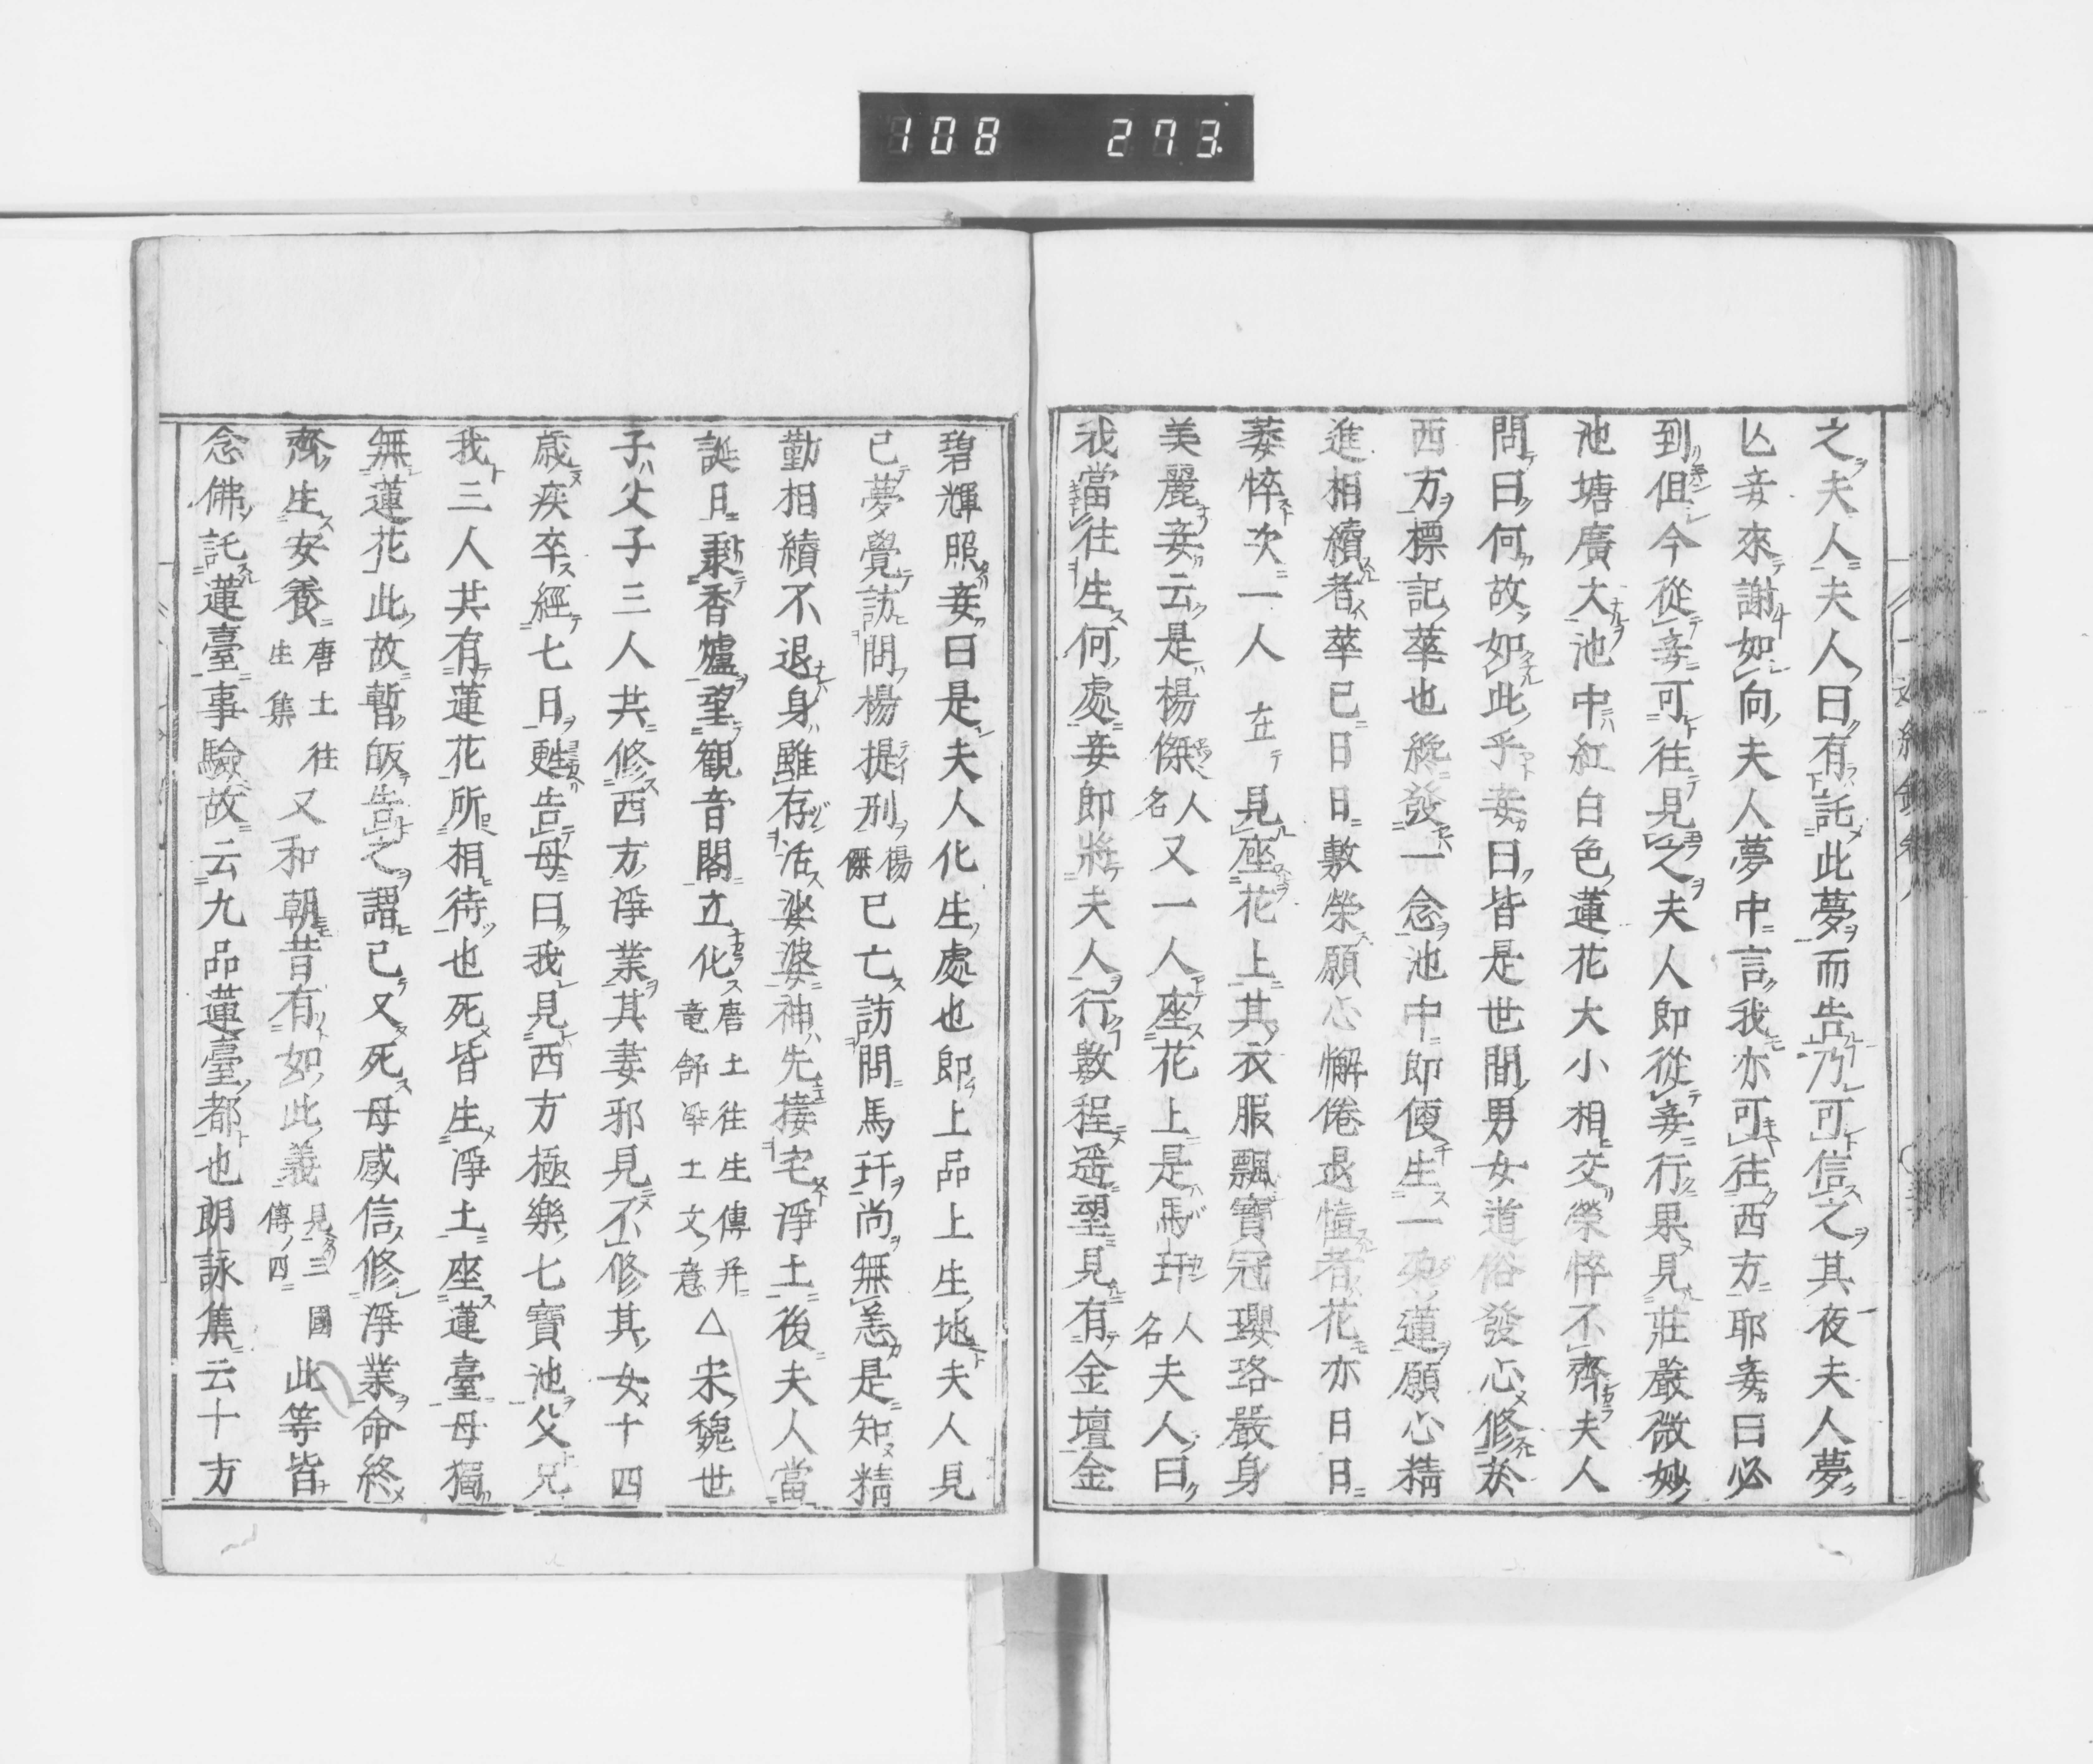 108 273.
之夫人夫人曰有託此夢而告乃可信之其夜夫人夢
亾妾來謝如向夫人夢中言我亦可往西方耶妾曰必
到但今從妾可往見之夫人即從妾行果見莊嚴微妙
池塘廣大池中紅白色蓮花大小相交榮悴不齊夫人
問曰何故如此乎妾曰皆是世間男女道俗發心修於
西方標記華也纔發一念池中即便生一朶蓮願心精
進相續者華已日日敷榮願心懈倦退憻者花亦日日
萎悴次一人在見座花上其衣服飄寶冠瓔珞嚴身
美麗妾云是楊傑人名又一人座花上是馬玕人名夫人曰
我當往生何處妾即將夫人行數程遥望見有金壇金
碧輝照妾曰是夫人化生處也即上品上生地夫人見
已夢覺訪問楊提刑楊傑已亡訪問馬玕尚無恙是知精
勤相續不退身雖存活娑婆神先接宅淨土後夫人當
誕日秉香爐望觀音閣立化唐土往生傳并竜舒淨土文意△宋魏世
子父子三人共修西方淨業其妻邪見不修其女十四
歲疾卒經七日甦告母曰我見西方極樂七寶池父兄
我三人共有蓮花所相待也死皆生淨土座蓮臺母獨
無蓮花此故暫皈告之謂已又死母感信修淨業命終
齊生安養唐土往生集又和朝昔有如此義見三國傳四此等皆
念佛託蓮臺事驗故云九品蓮臺都也朗詠集云十方